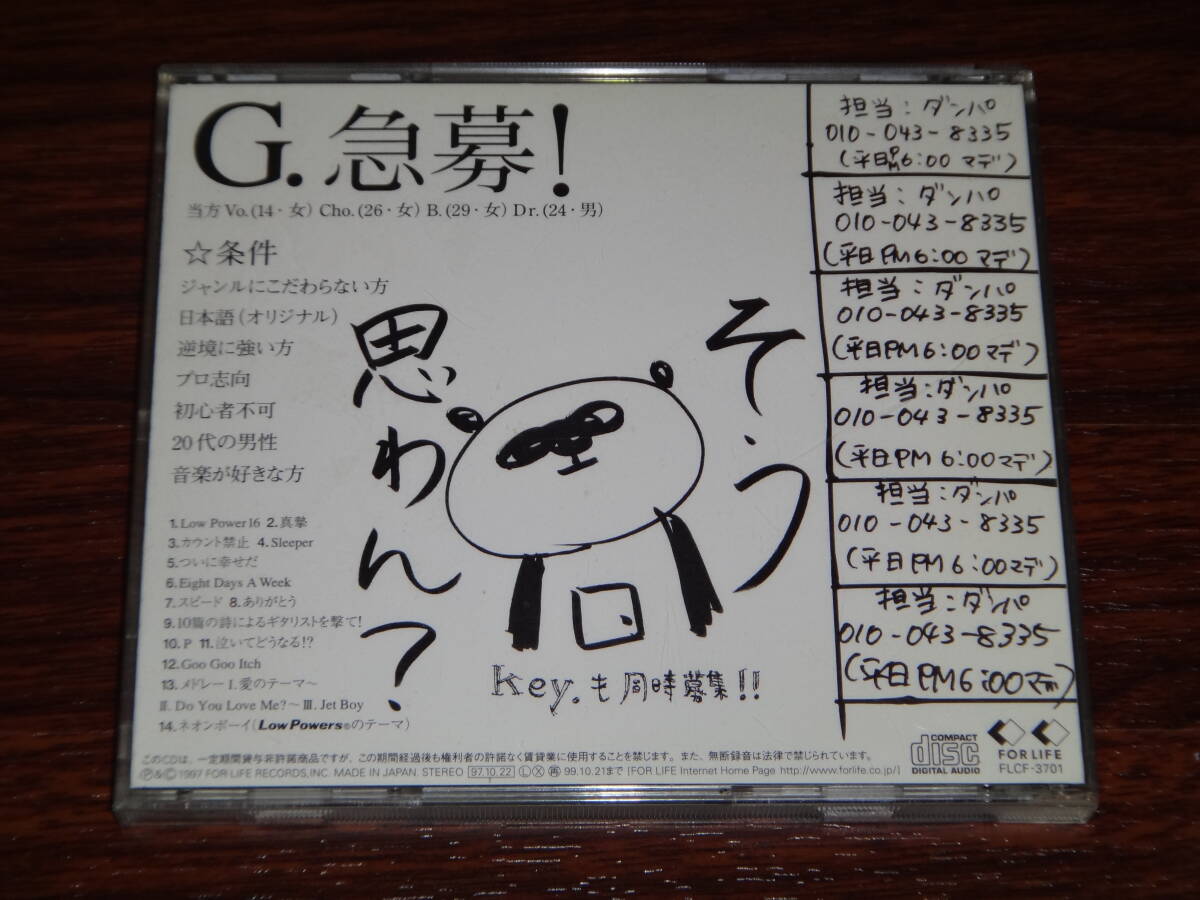 G.急募!
当方 Vo.(14・女) Cho.(26・女) B.(29・女) Dr.(24・男)
☆条件
ジャンルにこだわらない方
日本語(オリジナル)
逆境に強い方
プロ志向
初心者不可
20代の男性
音楽が好きな方
1.Low Power16 2.真摯
3.カウント禁止 4.Sleeper
5.ついに幸せだ
6.Eight Days A Week
7.スピード 8.ありがとう
9.10篇の詩によるギタリストを撃て!
10.P 11.泣いてどうなる!?
12.Goo Goo Itch
13.メドレーI.愛のテーマ~
II. Do You Love Me?~III. Jet Boy
14.ネオンボーイ(Low Powers®のテーマ)
そう
思わん?
key.も同時募集!!
担当:ダンパ
010-043-8335
(平日PM6:00マデ)
担当:ダンパ
010-043-8335
(平日PM6:00マデ)
担当:ダンパ
010-043-8335
(平日PM6:00マデ)
担当:ダンパ
010-043-8335
(平日PM6:00マデ)
担当:ダンパ
010-043-8335
(平日PM6:00マデ)
担当:ダンパ
010-043-8335
(平日PM6:00マデ)
COMPACT
disc
DIGITAL AUDIO
FOR LIFE
FLCF-3701
このCDは、一定期間貸与非許諾商品ですが、この期間経過後も権利者の許諾なく賃貸業に使用することを禁じます。また、無断録音は法律で禁じられています。
Ⓟ&©1997 FOR LIFE RECORDS,INC. MADE IN JAPAN. STEREO 97.10.22 Ⓛ Ⓧ 再 99.10.21まで [FOR LIFE Internet Home Page http://www.forlife.co.jp/]